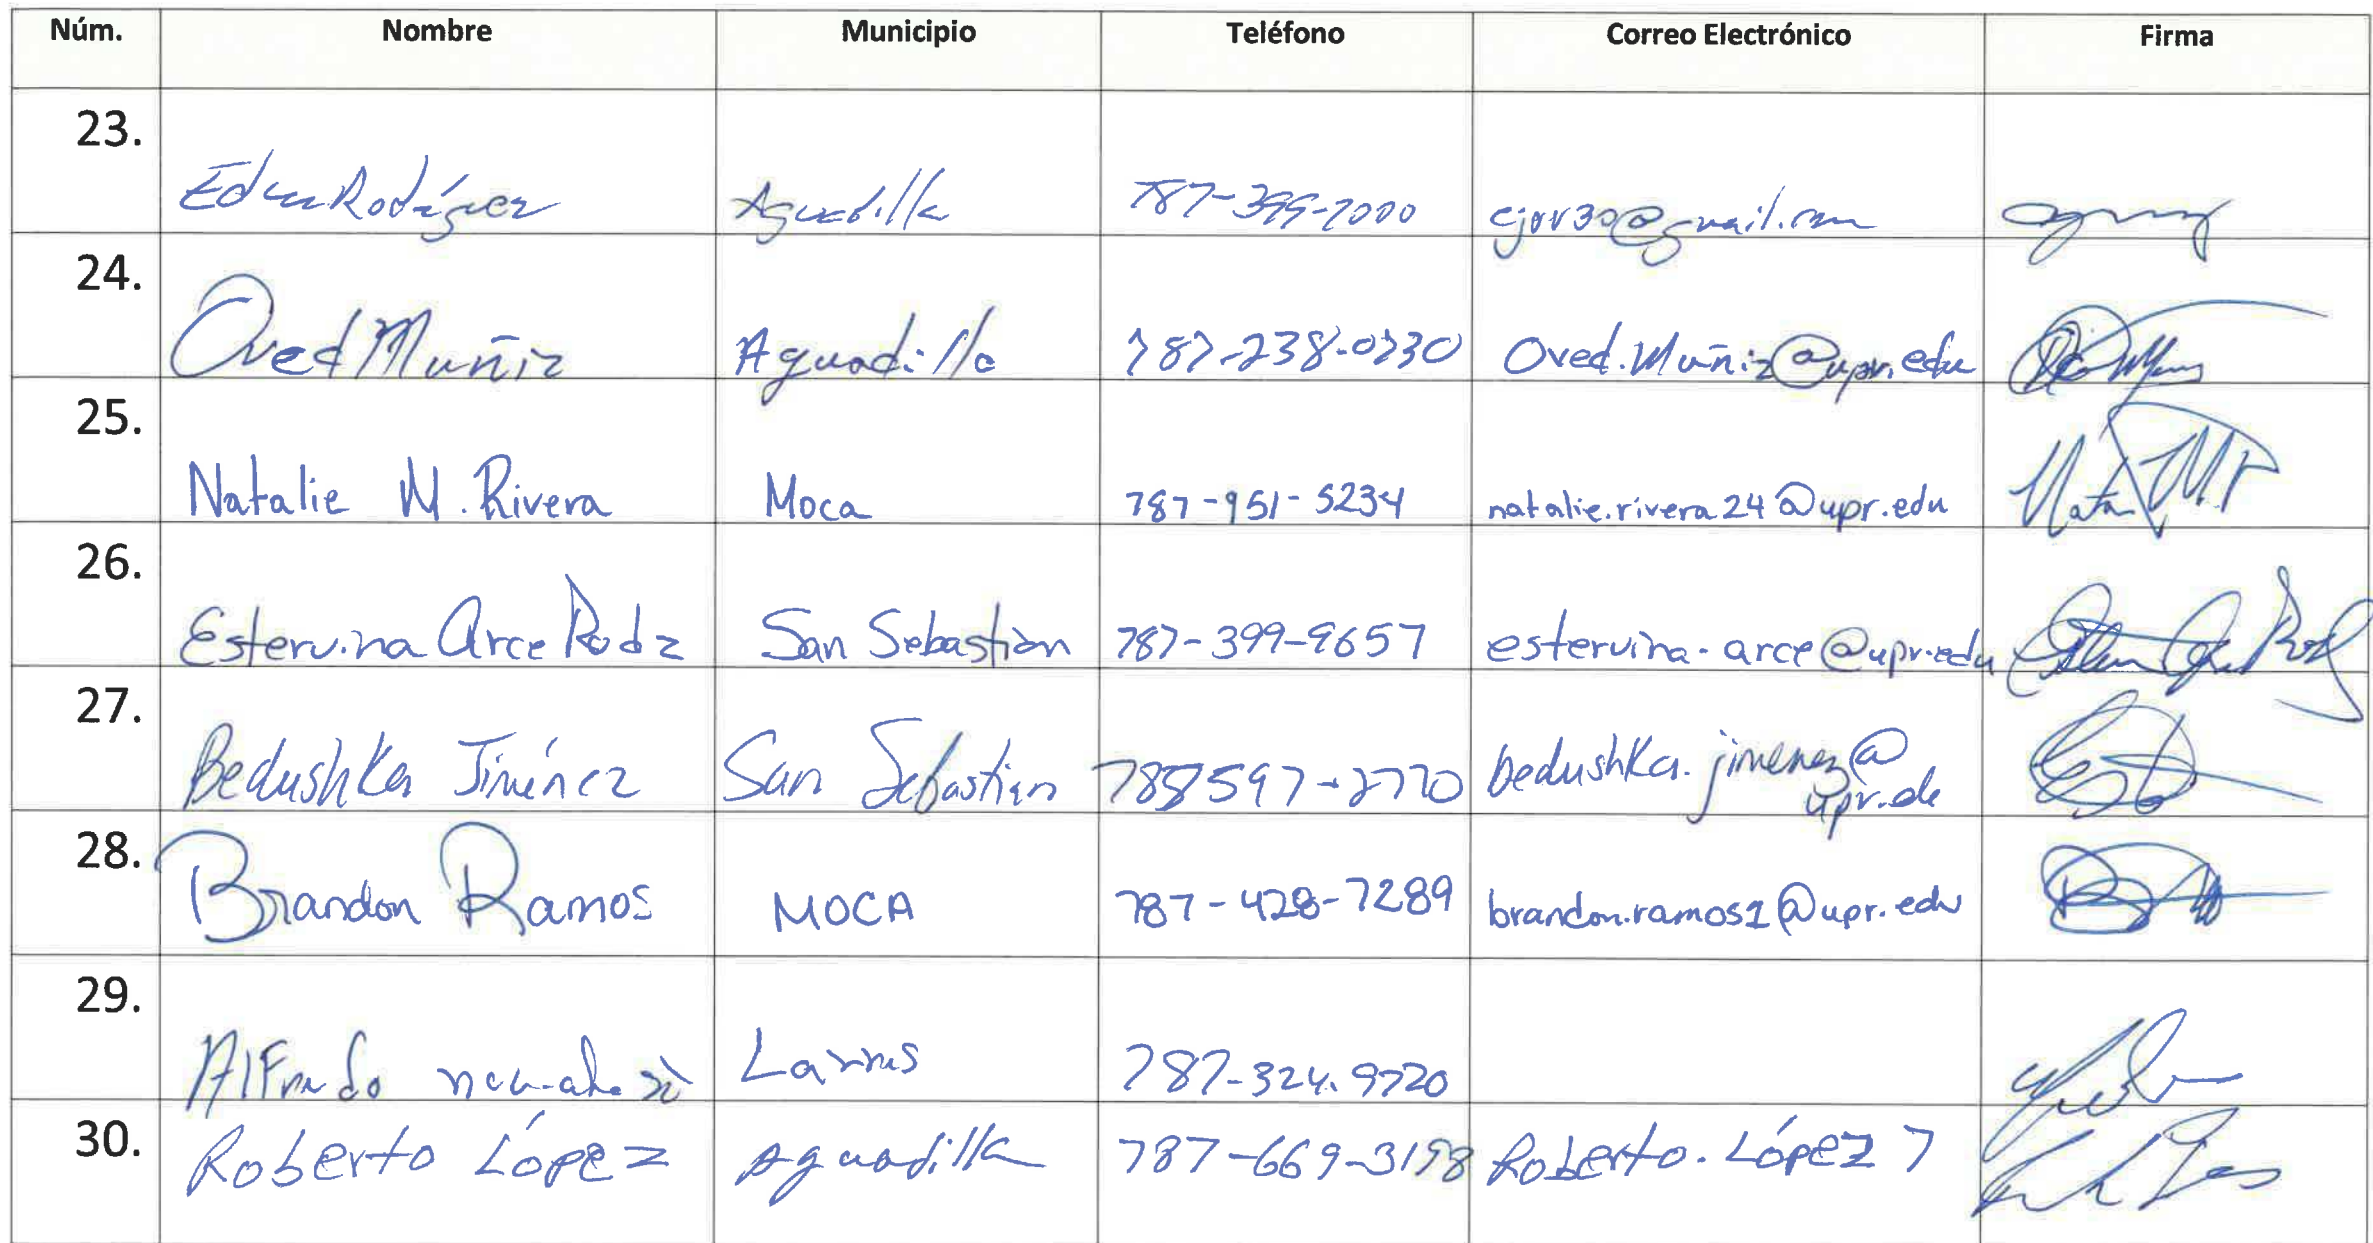 Núm. Nombre Municipio Teléfono Correo Electrónico Firma
23. Rodríguez Aguadilla 787-399-7000 ejrv30@gmail.com
24. Oved Muñiz Aguadilla 787-238-0730 Oved.Muñiz@upr.edu
25. Natalie M. Rivera Moca 787-951-5234 natalie.rivera24@upr.edu
26. Estervina Arce Rodz San Sebastián 787-399-9657 estervina.arce@upr.edu
27. Bedushka Jiménez San Sebastián bedushka.jimenez@
upr.edu
28. Brandon Ramos MOCA 787-428-7289 brandon.ramos1@upr.edu
29. Alfredo Lares 787-324.9720
30. Roberto López Aguadilla 787-669-3198 Roberto.López7